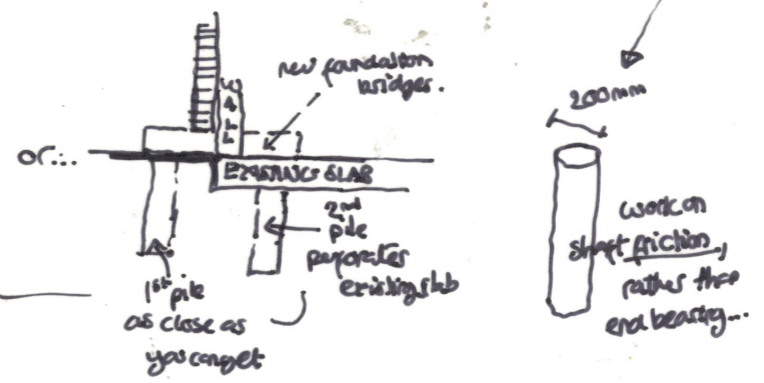 new foundation
bridges.
WALL
or...
EXISTING SLAB
2nd
pile
perforates
existing slab
1st pile
as close as
you can get
200mm
work on
shaft friction,
rather than
end bearing...